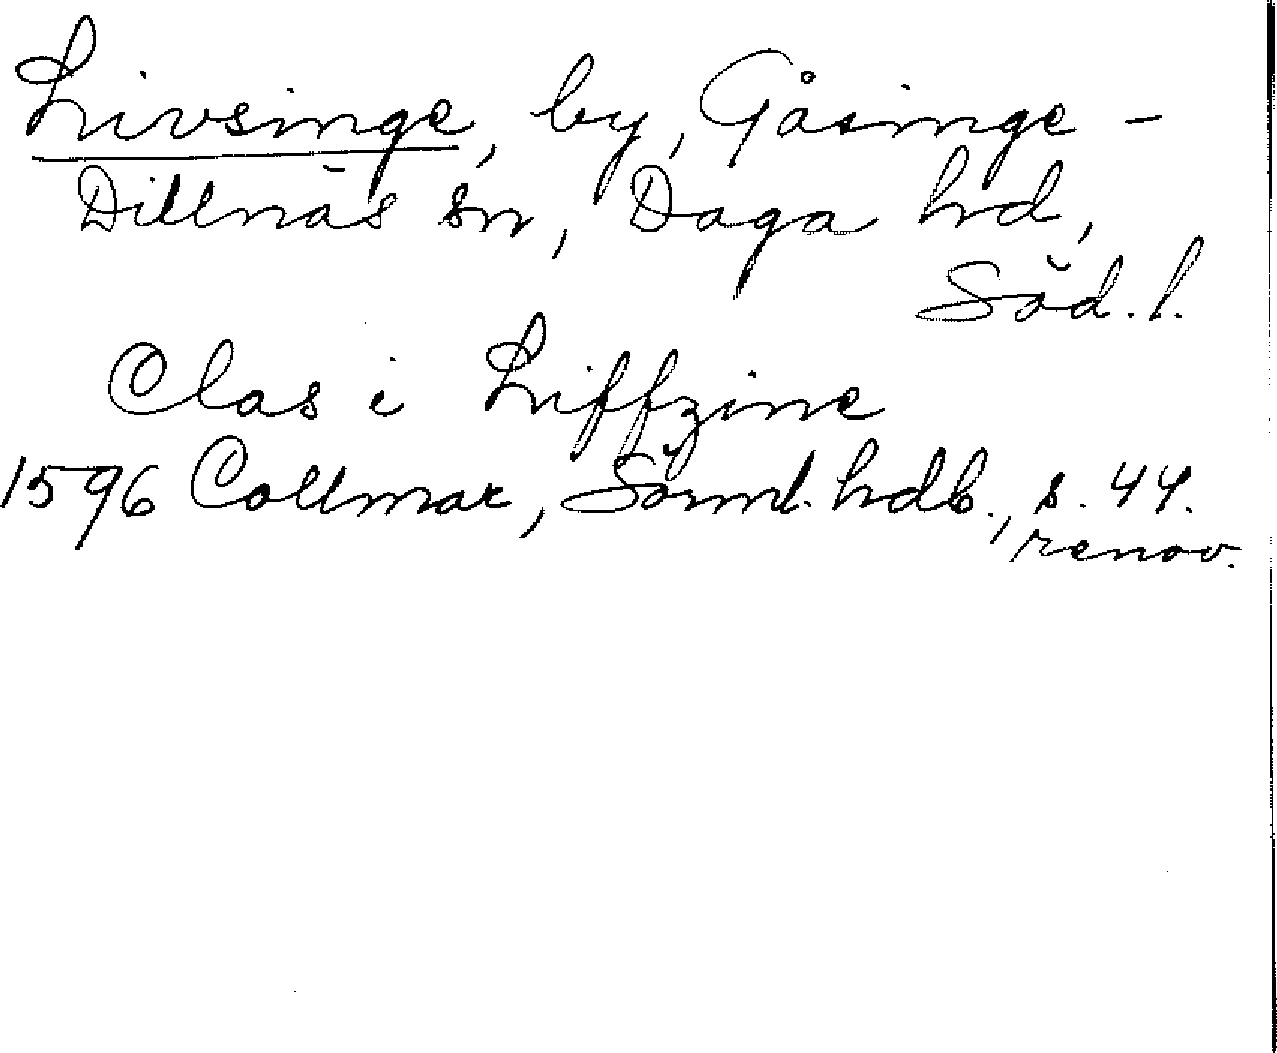 Livsinge, by, Gåsinge -
Dillnäs sn, Daga hd,
Söd. l.
Clas i Liffzine
1596 Collmar, Sörml. hdb., s. 44.
renov.